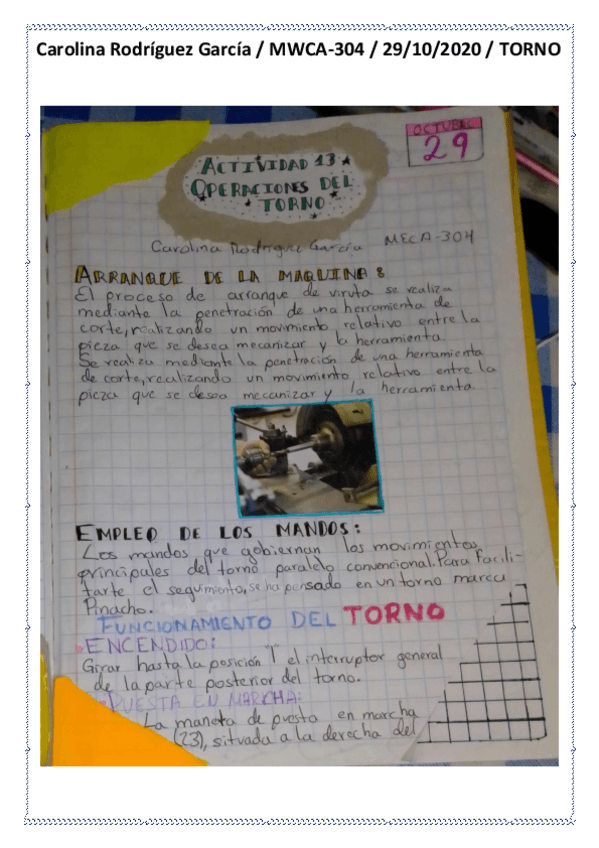 Carolina Rodríguez García / MWCA-304 / 29/10/2020 / TORNO
OCTUBRE
29
ACTIVIDAD 13
OPERACIONES DEL
TORNO
Carolina Rodríguez García MECA-304
ARRANQUE DE LA MAQUINA:
El proceso de arranque de viruta se realiza
mediante la penetración de una herramienta de
corte, realizando un movimiento relativo entre la
pieza que se desea mecanizar y la herramienta.
Se realiza mediante la penetración de una herramienta
de corte, realizando un movimiento relativo entre la
pieza que se desea mecanizar y la herramienta.
EMPLEO DE LOS MANDOS:
Los mandos que gobiernan los movimientos
principales del torno paralelo convencional. Para facili-
tarte el seguimiento, se ha pensado en un torno marca
Pinacho.
FUNCIONAMIENTO DEL TORNO
ENCENDIDO:
Girar hasta la posición "1" el interruptor general
de la parte posterior del torno.
PUESTA EN MARCHA:
La maneta de puesta en marcha
(23), situada a la derecha del